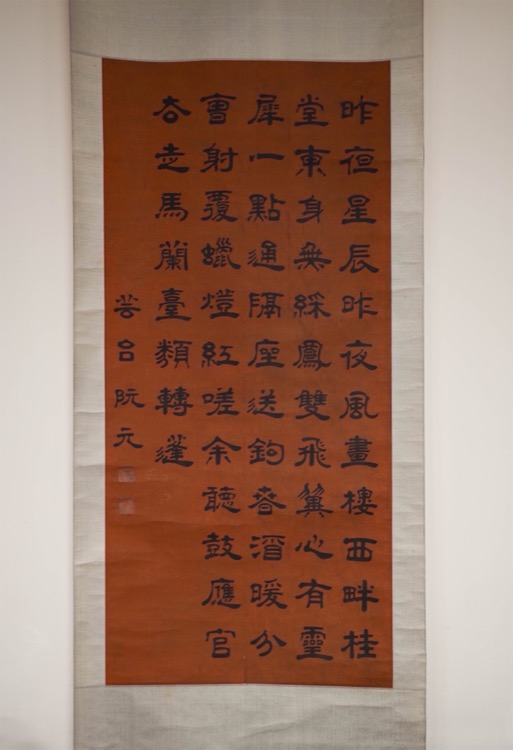 昨夜星辰昨夜風畫樓西畔桂
堂東身無綵鳳雙飛翼心有靈
犀一點通隔座送鉤春酒暖分
曹射覆蠟燈紅嗟余聽鼓應官
去走馬蘭臺類轉蓬
芸台阮元